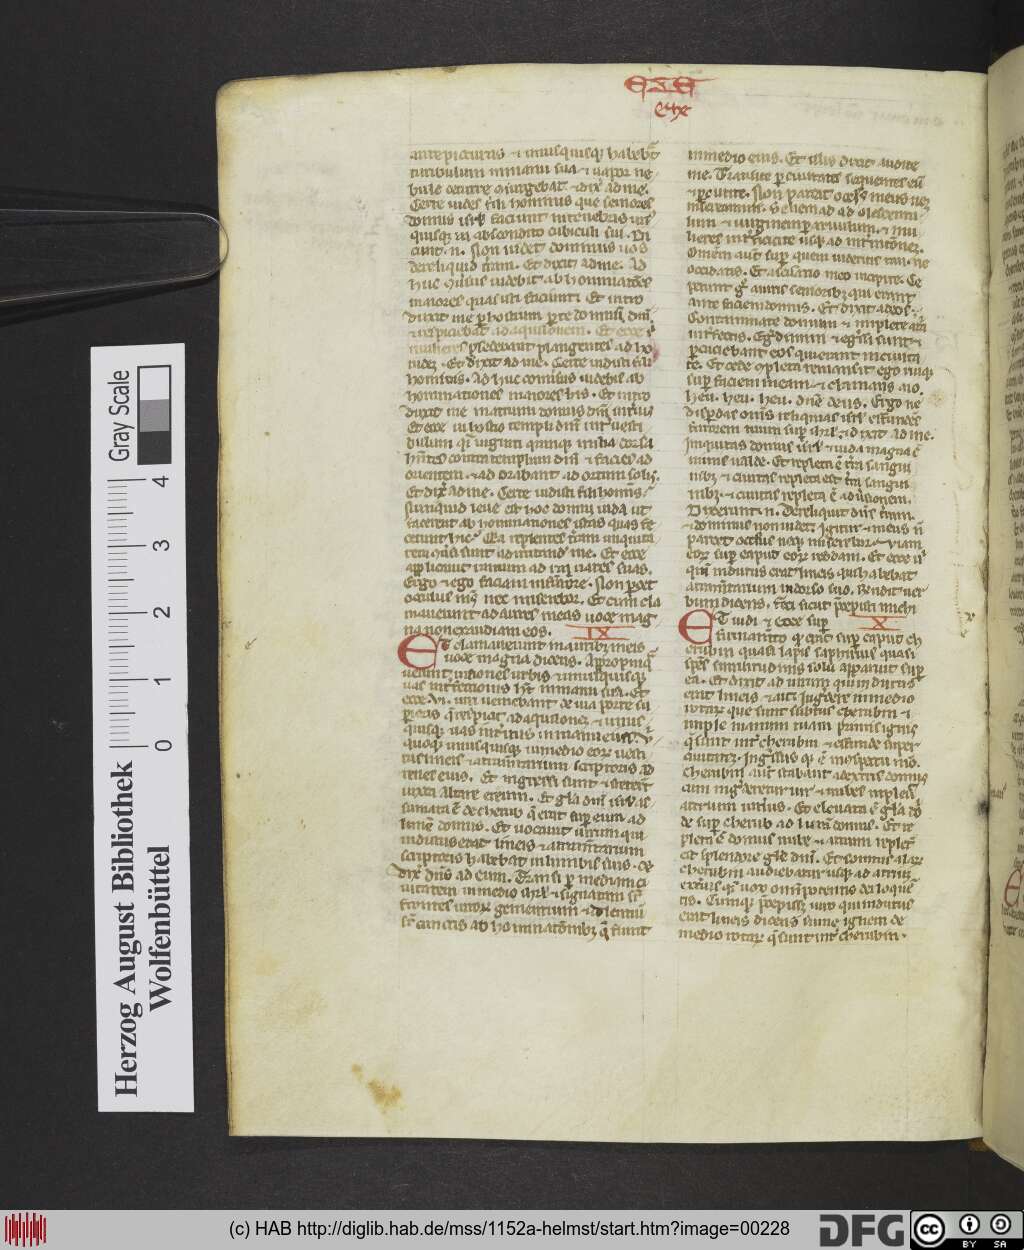 EZE
ante picturas ⁊ unusquisque habebat
turibulum in manu sua ⁊ uapor ne
bule
Certe uides fili hominis que seniores
domus isrl faciunt in tenebris un
quisque in abscondito cubiculi sui. Di
cunt .n. Non uidet dominus nos
dereliquid terram. Et dixit ad me. Ad
huc uidebis abhominationes
maiores quas isti faciunt. Et intro
duxit me per hostium porte domus dni
⁊ respiciebat ad aquilonem. Et ecce i
mulieres sedebant plangentes ado
nidem. Et dixit ad me. Certe uidisti fili
hominis. Ad huc uidebis ab
hominationes maiores his. Et intro
duxit me in atrium domus dni interius
Et ecce in hostio templi dni inter uesti
bulum
contra templum dni ⁊ facies ad
orientem. ⁊ adorabant ad ortum solis.
Et dixit ad me. Certe uidisti fili hominis
Nunquid leue est hoc domui iuda ut
facerent abhominationes istas quas fe
cerunt hic. Quia replentes terram iniquita
te
applicant ramum ad nares suas.
Ergo ⁊ ego faciam in furore. Non parcet
oculus meus nec miserebor. Et cum cla
mauerint ad aures meas uoce mag
na non exaudiam eos. IX
Et clamauerunt in auribus meis
uoce magna dicens. Appropinqua
uerunt uisiones urbis ⁊ unusquisque
uas interfectionis habet in manu sua. Et
ecce .vi. uiri ueniebant de uia porte su
perioris que respicit ad aquilonem ⁊ unius
cuiusque uas interitus in manu eius. Vir
quoque unusquisque in medio eorum uesti
tus lineis ⁊ atramentarium scriptoris ad
renes eius. Et ingressi sunt ⁊ steterunt
iuxta altare ereum. Et gla dni isrl as
sumta est de cherub que erat super eum ad
limen domus. Et uocauit uirum qui
indutus erat lineis ⁊ atramentarium
scriptoris habebat in lumbis suis. ⁊
dixit dns ad eum. Transi per mediam ci
uitatem in medio ihrlm ⁊ signa tau super
frontes uirorum gementium ⁊ dolentium
super cunctis abhominationibus que fiunt
in medio eius. Et illis dixit audite
me. Transite per ciuitatem sequentes eum
⁊ percutite. Non parcat oculus uester neque
misereamini. Senem ad adolescentu
lum ⁊ uirginem paruulum. ⁊ mu
lieres interficite usque ad internitionem.
Omnem aut super quem uideritis tau. ne
occidatis. Et a sanctuario meo incipite. Ce
perunt ergo a uiris senioribus qui erant
ante faciem domus. Et dixit ad eos.
Contaminate domum ⁊ implete atria
interfectis. Egredimini ⁊ egressi sunt ⁊
percutiebant eos qui erant in ciuita
te. Et cede completa remansi ego ruique
super faciem meam ⁊ clamans aio.
Heu. heu. heu. dne deus. Ergo ne
disperdas omnes reliquias isrl effundens
furorem tuum super ihrlm. ⁊ dixit ad me.
Iniquitas domus isrl ⁊ iuda magna est
nimis ualde. Et repleta est terra sangui
nibus ⁊ ciuitas repleta est
nibus. ⁊ ciuitas repleta est aduersione.
Dixerunt .n. Dereliquit dns terram.
⁊ dominus non uidet. Igitur ⁊ meus non
parcet oculus neque miserebor. Viam
eorum super caput eorum reddam. Et ecce uir
qui indutus erat lineis qui habebat
atramentarium in dorso suo. Respondit uer
bum dicens. Feci sicut precepisti michi
Et uidi ⁊ ecce sup X
firmamento quod erat super caput ch
erubin quasi lapis saphirus quasi
species similitudinis solii apparuit super
ea. Et dixit ad uirum qui indutus
erat lineis ⁊ ait ingredere in medio
rotarum que sunt subtus cherubin ⁊
imple manum tuam prunis ignis
que sunt inter cherubin ⁊ effunde super
ciuitatem. Ingressus que est in conspectu meo.
Cherubin aut stabant a dextris domus
cum ingrederetur uir ⁊ nubes impleuit
atrium interius. Et eleuata est gla do
de super cherub ad limen domus. Et re
pleta est domus nube ⁊ atrium repletum
est splendore gle dni. Et sonitus alarum
cherubin audiebatur usque ad atrium
exterius quasi uox omnipotentis dei loquen
tis. Cumque precepisset uiro qui indutus
erat lineis dicens sume ignem de
medio rotarum que sunt inter cherubin.
Herzog August Bibliothek
Wolfenbüttel
Gray Scale
0 1 2 3 4
(c) HAB http://diglib.hab.de/mss/1152a-helmst/start.htm?image=00228
DFG
cc BY SA